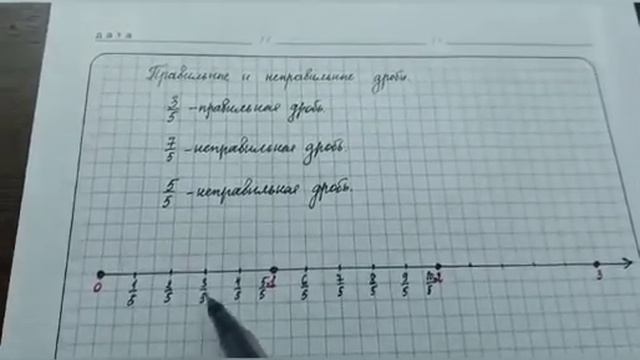 дата
Правильные и неправильные дроби.
3/5 - правильная дробь.
7/5 - неправильная дробь.
5/5 - неправильная дробь.
0 1/5 2/5 3/5 4/5 5/5 1 6/5 7/5 8/5 9/5 10/5 2 3